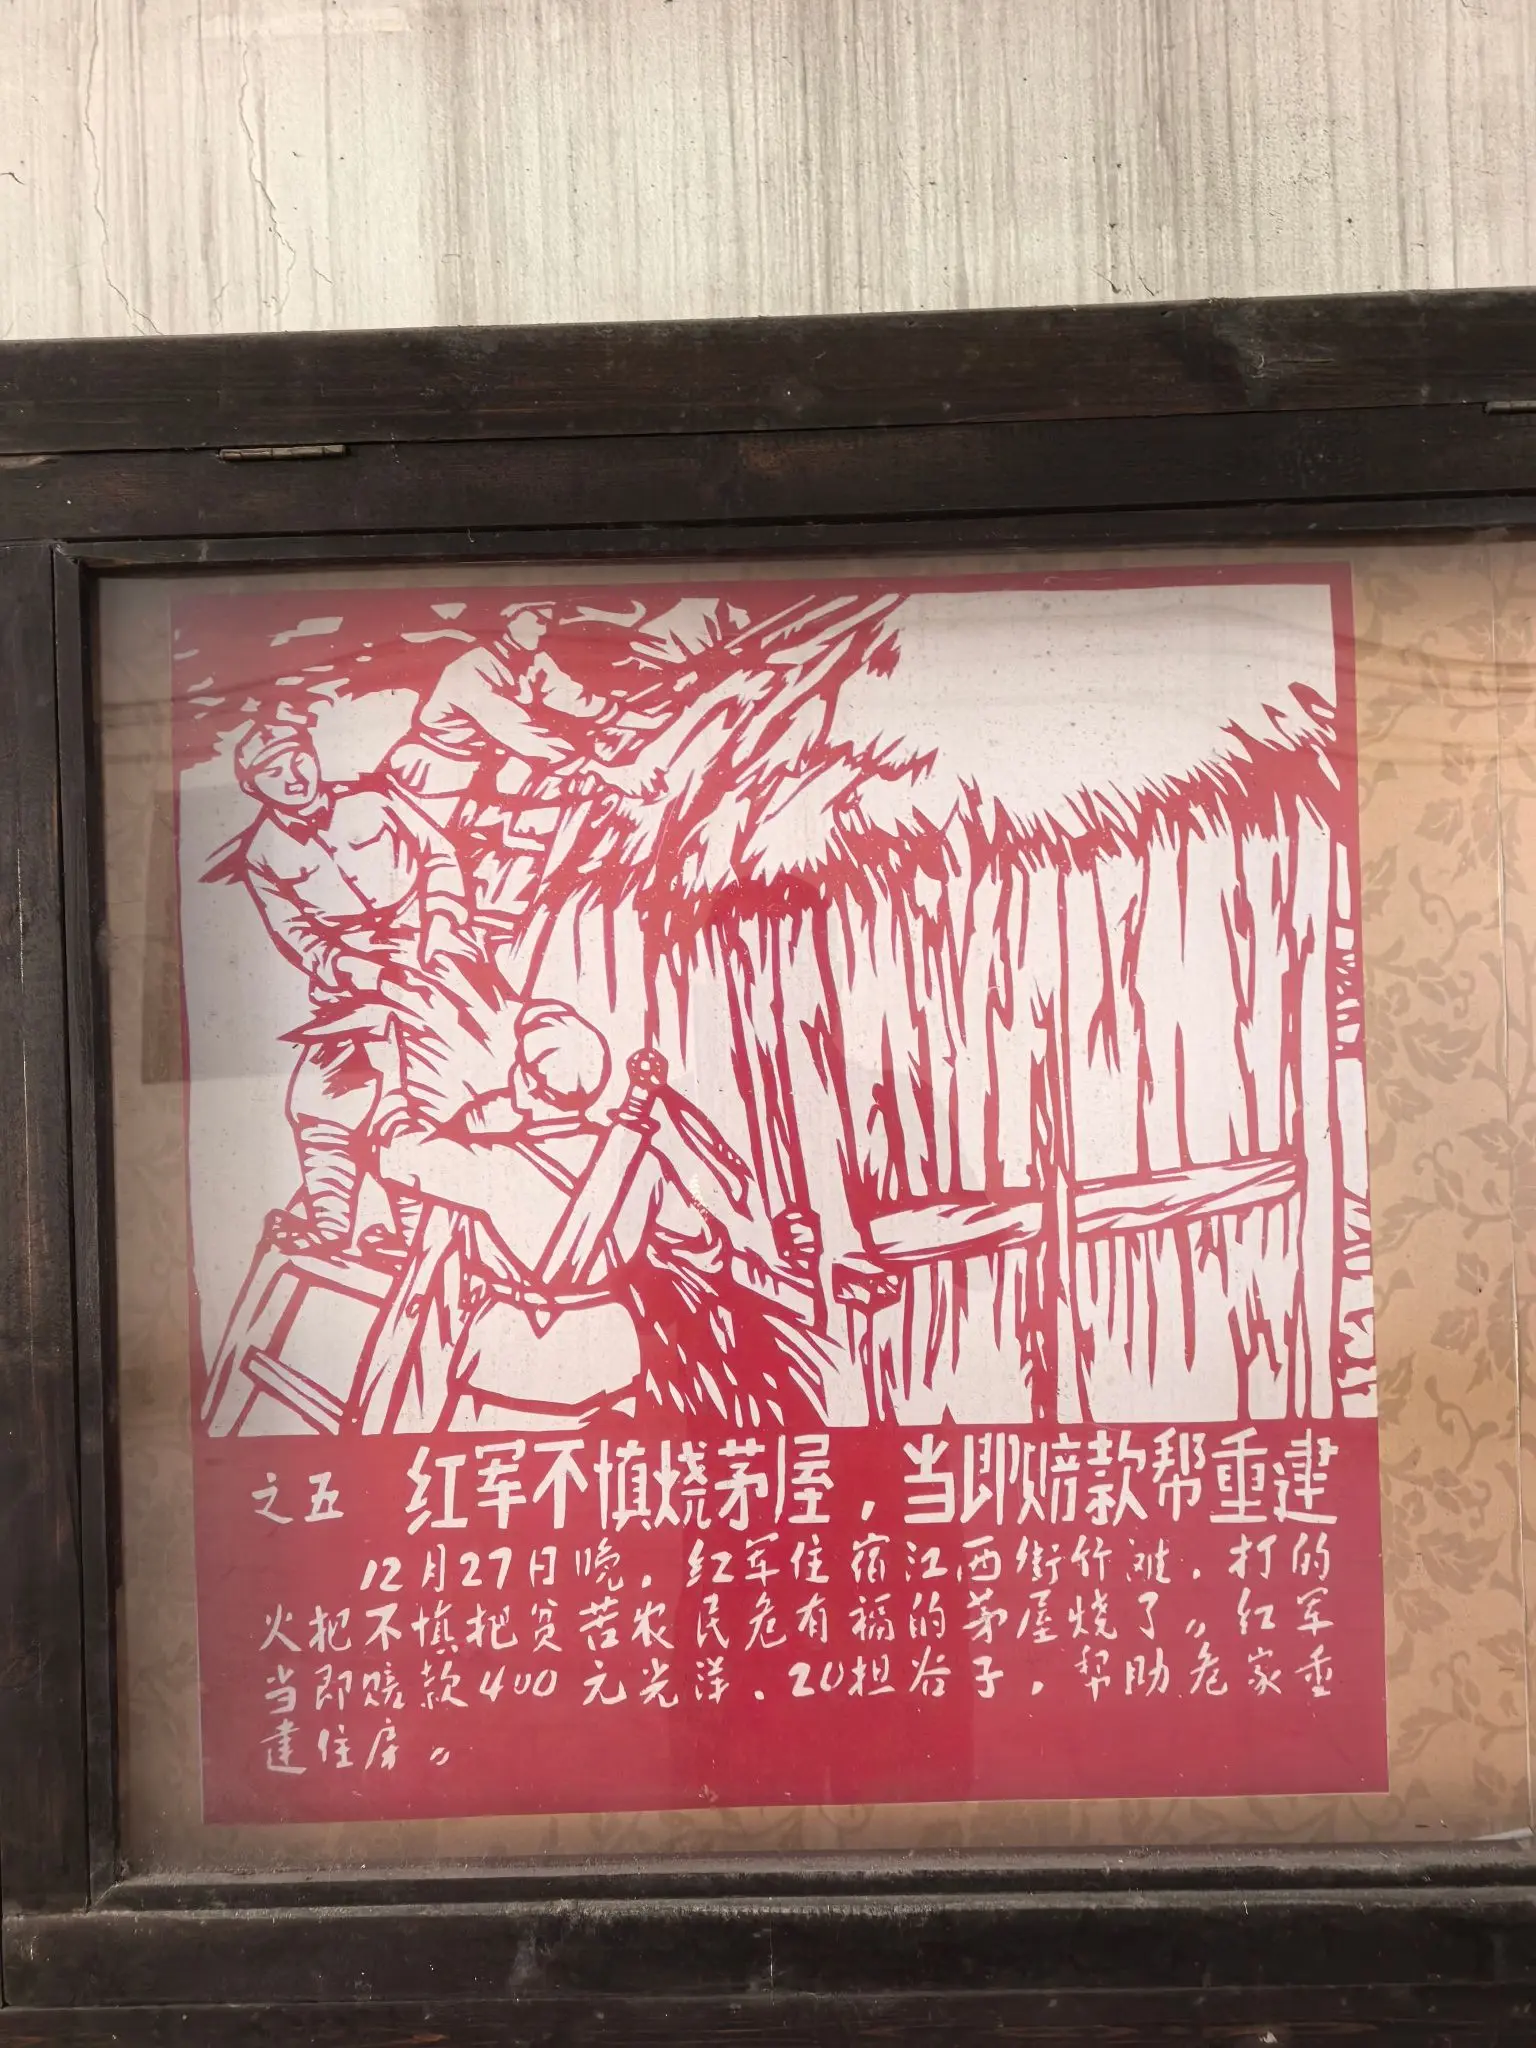 之五 红军不慎烧茅屋，当即赔款帮重建
12月27日晚，红军住宿江西街竹滩，打的
火把不慎把贫苦农民危有福的茅屋烧了。红军
当即赔款400元光洋、20担谷子，帮助危家重
建住房。